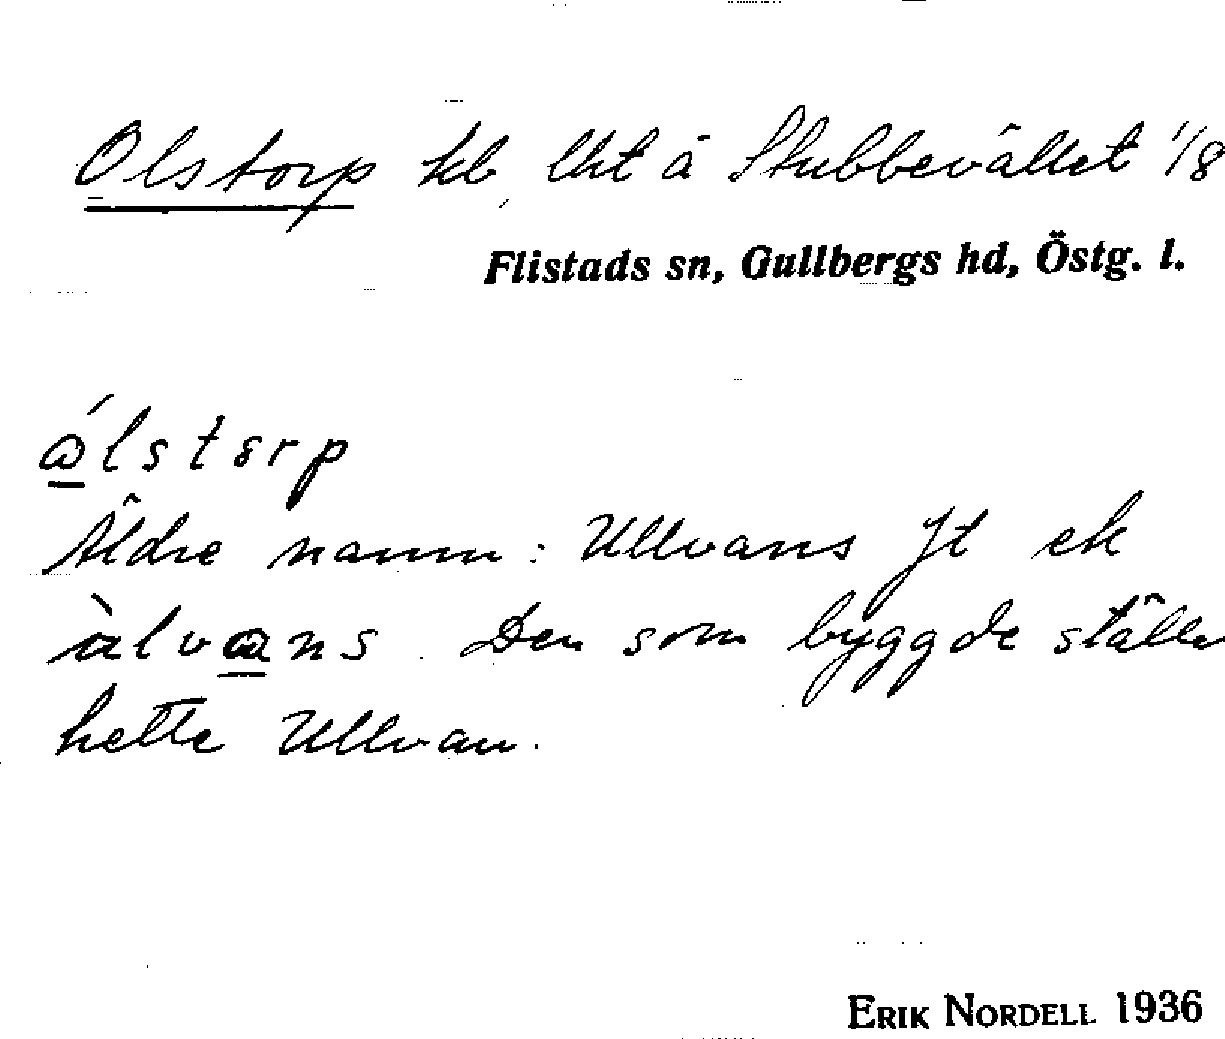 Olstorp kb, lht å Stubbevället 1/8
Flistads sn, Gullbergs hd, Östg. l.
Äldre namn: Ullvans Jt ek
Den som byggde ställe
hette Ullvan.
ERIK NORDELL 1936